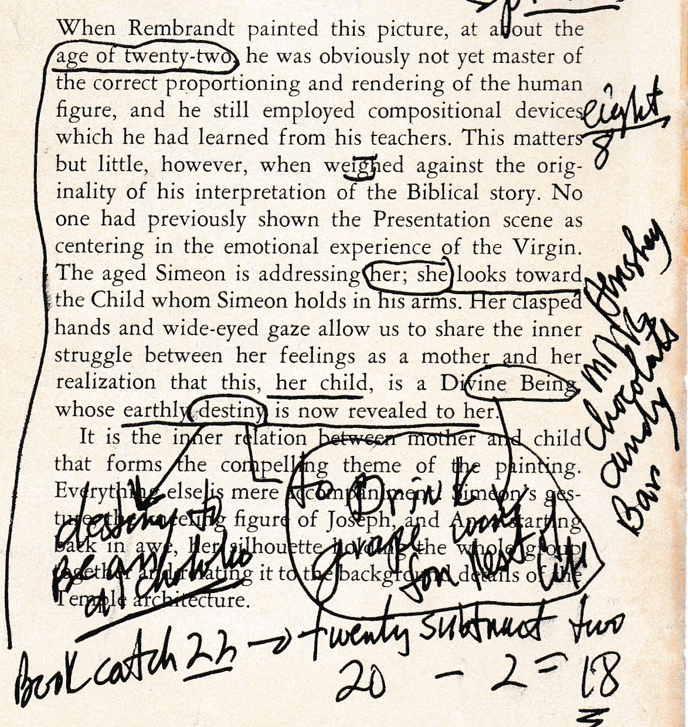 When Rembrandt painted this picture, at about the
age of twenty-two, he was obviously not yet master of
the correct proportioning and rendering of the human
figure, and he still employed compositional devices
which he had learned from his teachers. This matters
but little, however, when weighed against the orig-
inality of his interpretation of the Biblical story. No
one had previously shown the Presentation scene as
centering in the emotional experience of the Virgin.
The aged Simeon is addressing her; she looks toward
the Child whom Simeon holds in his arms. Her clasped
hands and wide-eyed gaze allow us to share the inner
struggle between her feelings as a mother and her
realization that this, her child, is a Divine Being,
whose earthly destiny is now revealed to her.
It is the inner relation between mother and child
that forms the compelling theme of the painting.
Everything else is mere accompaniment: Simeon's ges-
ture, the kneeling figure of Joseph, and Anna starting
back in awe, her silhouette holding the whole group
together and relating it to the background details of the
Temple architecture.
eight
8
Hershey
milk
chocolate
candy
Bar
destiny to
Be an
alcoholic
to Drink
grape
for Rest life
Book catch 22 → twenty subtract two
20 - 2 = 18